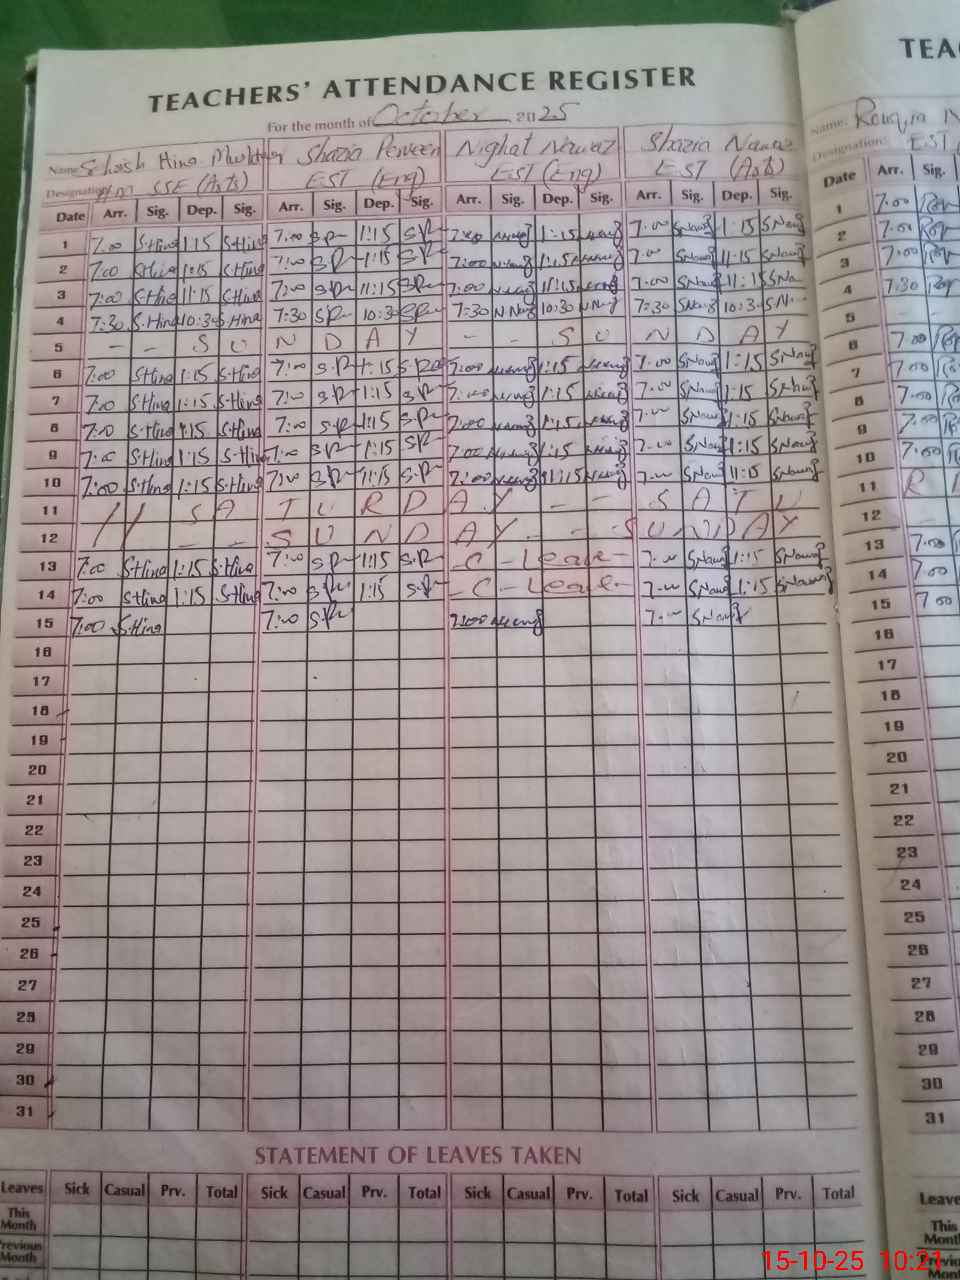 TEACHERS' ATTENDANCE REGISTER
For the month of October 2025
Name Hina Shazia Perveen Nighat Nawaz Shazia Nawaz
Designation SSE (Arts) EST (Eng) EST (Eng) EST (Arts)
Date Arr. Sig. Dep. Sig. Arr. Sig. Dep. Sig. Arr. Sig. Dep. Sig. Arr. Sig. Dep. Sig.
1 7:00 S.Hina 1:15 S.Hina 7:00 S.P 1:15 S.P 7:00 1:15 7:00 SNawaz 1:15 SNawaz
2 7:00 S.Hina 1:15 S.Hina 7:00 S.P 1:15 S.P 7:00 1:15 7:00 SNawaz 1:15 SNawaz
3 7:00 S.Hina 1:15 S.Hina 7:00 S.P 1:15 S.P 7:00 1:15 7:00 SNawaz 1:15 SNa
4 7:30 S.Hina 10:30 S.Hina 7:30 S.P 10:30 S.P 7:30 10:30 7:30 SNawaz 10:30 S.N
5 - - S U N D A Y - - S U N D A Y
6 7:00 S.Hina 1:15 S.Hina 7:00 S.P 1:15 S.P 7:00 1:15 7:00 SNawaz 1:15 SNawaz
7 7:00 S.Hina 1:15 S.Hina 7:00 S.P 1:15 S.P 7:00 1:15 7:00 SNawaz 1:15 SNawaz
8 7:00 S.Hina 1:15 S.Hina 7:00 S.P 1:15 S.P 7:00 1:15 7:00 SNawaz 1:15 SNawaz
9 7:00 S.Hina 1:15 S.Hina 7:00 S.P 1:15 S.P 7:00 1:15 7:00 SNawaz 1:15 SNawaz
10 7:00 S.Hina 1:15 S.Hina 7:00 S.P 1:15 S.P 7:00 1:15 7:00 SNawaz 1:15 SNawaz
11 S A T U R D A Y - - S A T U
12 - - S U N D A Y - - S U N D A Y
13 7:00 S.Hina 1:15 S.Hina 7:00 S.P 1:15 S.P - C - Leave - 7:00 SNawaz 1:15 SNawaz
14 7:00 S.Hina 1:15 S.Hina 7:00 S.P 1:15 S.P - C - Leave - 7:00 SNawaz 1:15 SNawaz
15 7:00 S.Hina 7:00 S.P 7:00 7:00 SNawaz
16
17
18
19
20
21
22
23
24
25
26
27
28
29
30
31
STATEMENT OF LEAVES TAKEN
Leaves Sick Casual Prv. Total Sick Casual Prv. Total Sick Casual Prv. Total Sick Casual Prv. Total
This Month
Previous Month
TEA
Name: N
Designation: EST
Date Arr. Sig.
1 7:00
2 7:00
3 7:00
4 7:30
5 - -
6 7:00
7 7:00
8 7:00
9 7:00
10 7:00
11 R
12
13 7:00
14 7:00
15 7:00
16
17
18
19
20
21
22
23
24
25
26
27
28
29
30
31
Leave
This
Mont
15-10-25 10:21